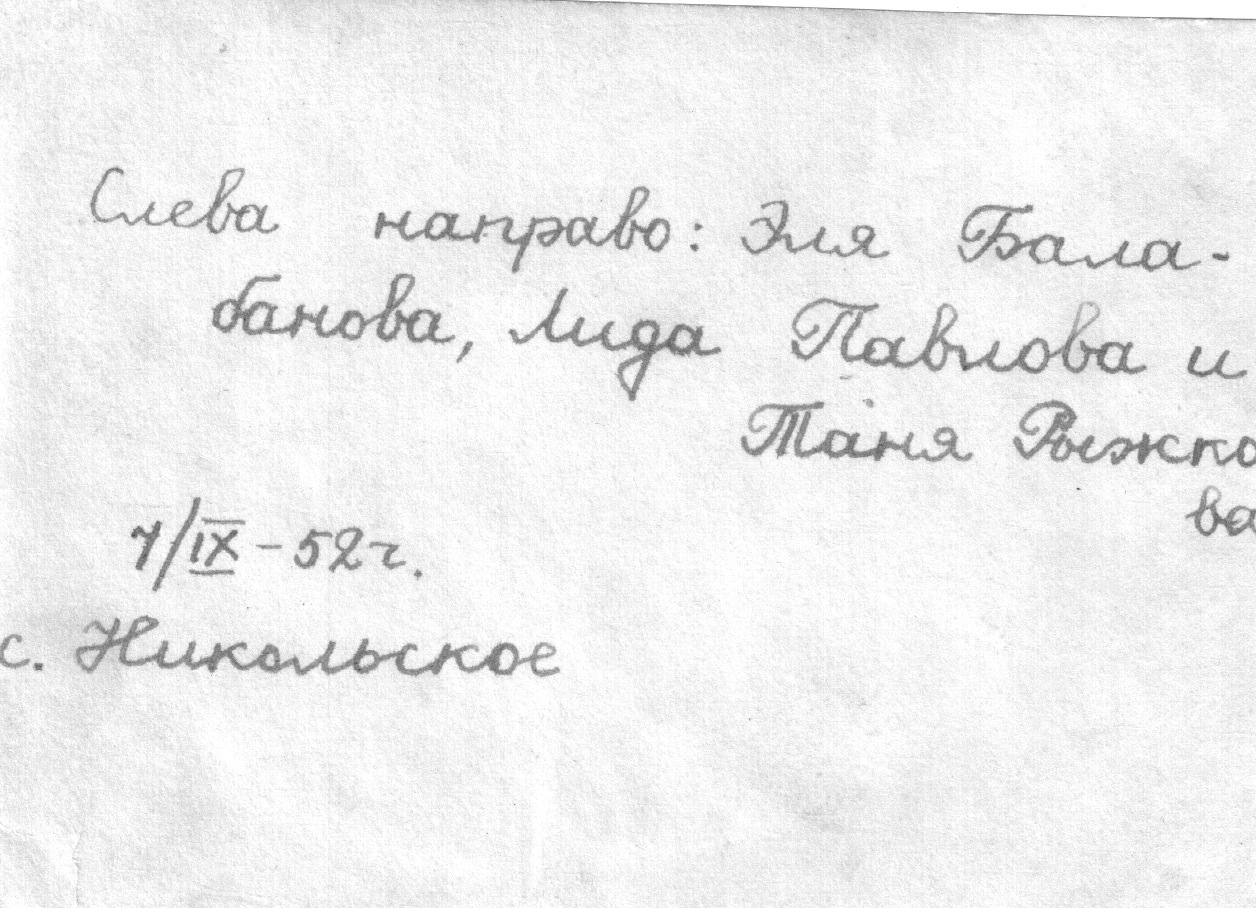 Слева направо: Эля Бала-
банова, Лида Павлова и
Таня Рыжко
ва
7/IX - 52 г.
с. Никольское